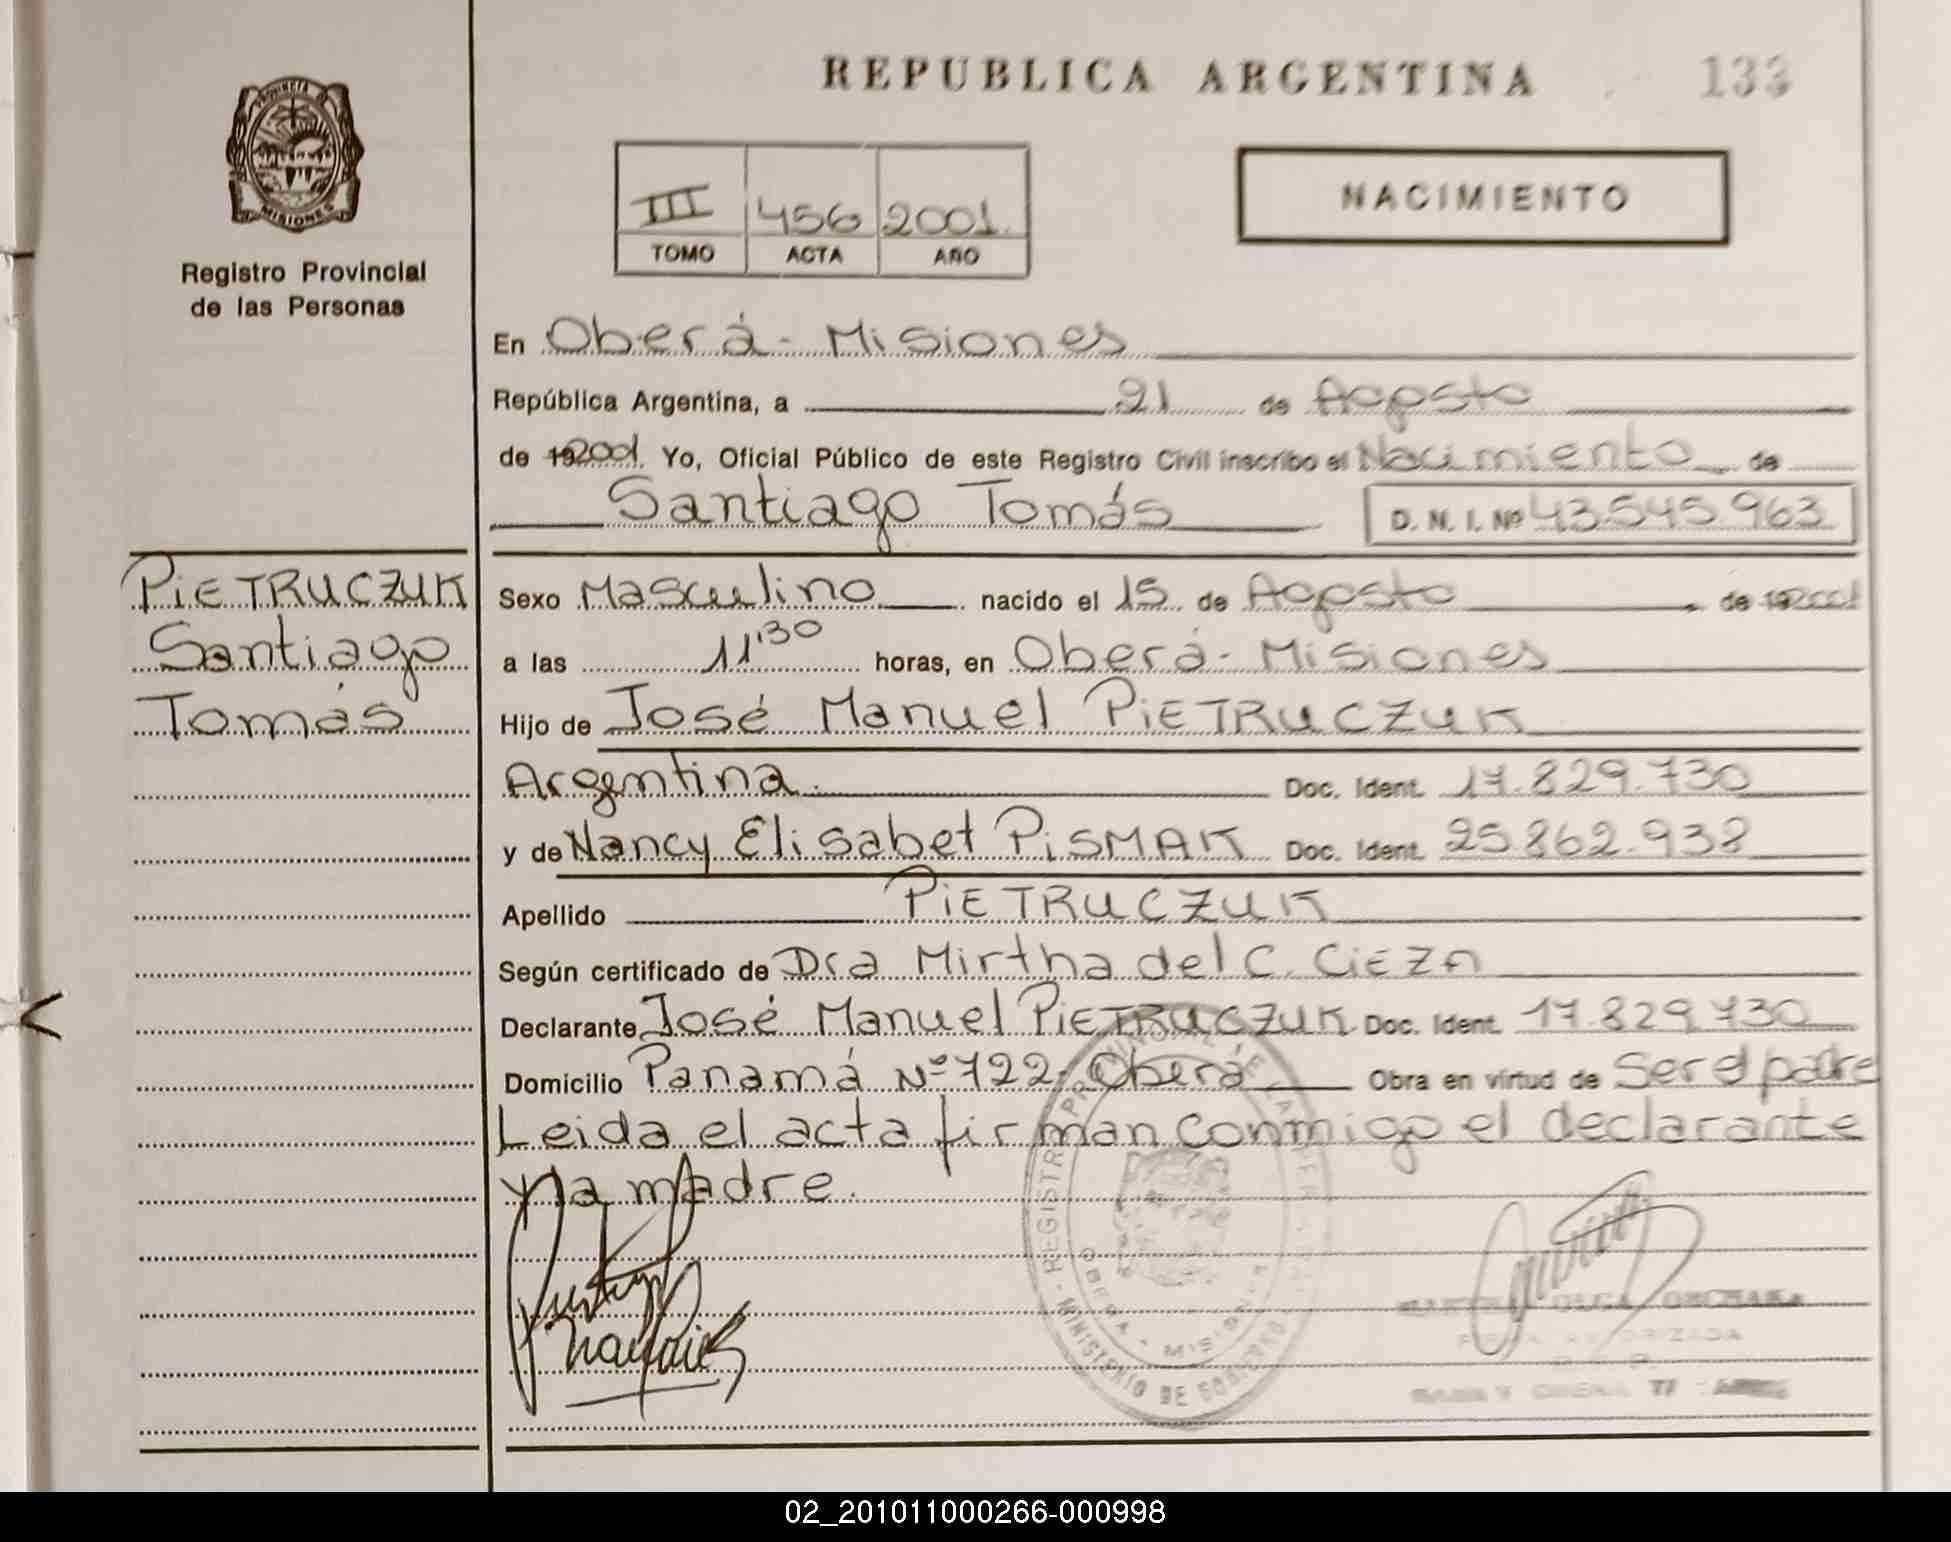 REPUBLICA ARGENTINA 133
PROVINCIA DE MISIONES
Registro Provincial
de las Personas
III 456 2001
TOMO ACTA AÑO
NACIMIENTO
En Oberá - Misiones
República Argentina, a 21 de Agosto
de 192001 Yo, Oficial Público de este Registro Civil inscribo el Nacimiento de
Santiago Tomás D. N. I. Nº 43.545.963
PIETRUCZUK
Santiago
Tomás
Sexo Masculino nacido el 15 de Agosto de 192001
a las 11'30 horas, en Oberá - Misiones
Hijo de José Manuel PIETRUCZUK
Argentina. Doc. Ident. 17.829.730
y de Nancy Elisabet PISMAK Doc. Ident. 25.862.938
Apellido PIETRUCZUK
Según certificado de Dra Mirtha del C. CIEZA
Declarante José Manuel PIETRUCZUK Doc. Ident. 17.829.730
Domicilio Panamá Nº 722 Oberá Obra en virtud de Ser el padre
Leida el acta firman conmigo el declarante
y la madre.
REGISTRO PROVINCIAL DE LAS PER
OBERA - MISIONES
MINISTERIO DE GOBIERNO
OLGA
AUTORIZADA
02_201011000266-000998